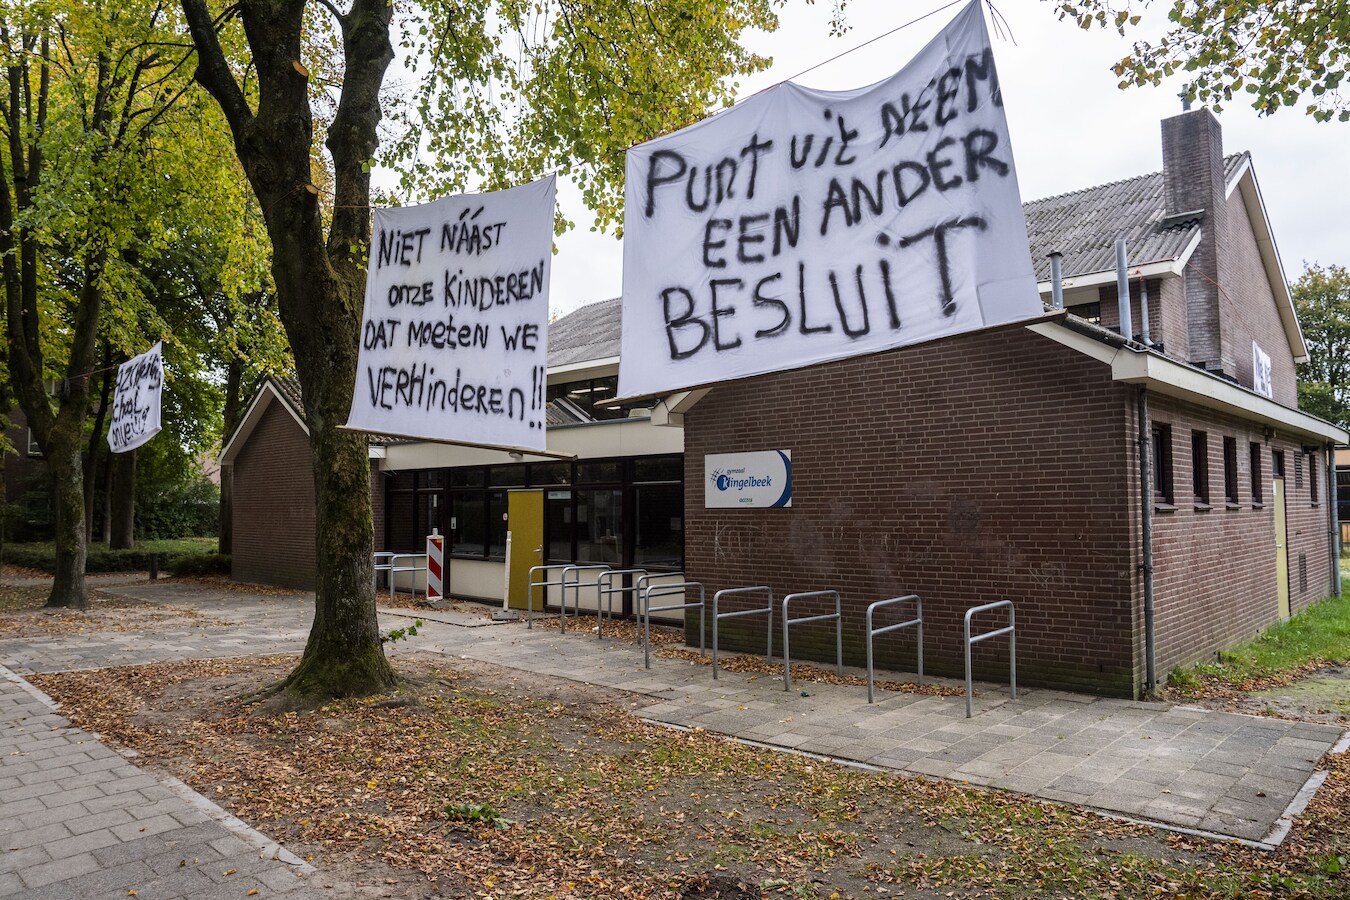 NIET NÁÁST
onze KINDEREN
DAT MOETEN WE
VERHINDEREN!!
PUNT UIT NEEM
EEN ANDER
BESLUIT
gymzaal
Klingelbeek